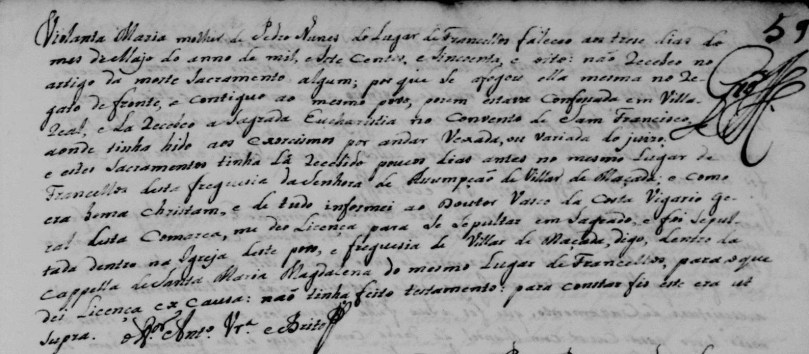 59
Violanta Maria molher de Pedro Nunes do Lugar de Francellos faleceo aos trese dias do
mes de Majo do anno de mil, e sete centos, e sincoenta, e oito: não Recebeo no
artigo da morte Sacramento algum; por que se afogou ella mesma no Re-
gato de fronte, e contiguo ao mesmo povo, porem estava Confessada em Villa
Real, e La Recebeo a Sagrada Eucharistia no Convento de Sam Francisco,
aonde tinha hido aos Exorcismos por andar Vexada, ou variada do juizo:
e estes Sacramentos tinha Lá Recebido poucos dias antes no mesmo Lugar de
Francellos desta freguesia da Senhora de Assumpção de Villar de Maçada: e como
era bema Christam, e de tudo informei ao Doutor Vasco da Costa Vigario Ge-
ral desta Comarca, me deo Licença para se sepultar em Sagrado, e foi sepul-
tada dentro na Igreja deste povo, e freguesia de Villar de Macada, digo, dentro da
Cappella de Santa Maria Magdalena do mesmo Lugar de Francellos, para o que
dei Licença ex causa: não tinha feito testamento: para constar fis este era ut
supra. Anto. Vra. e Brito